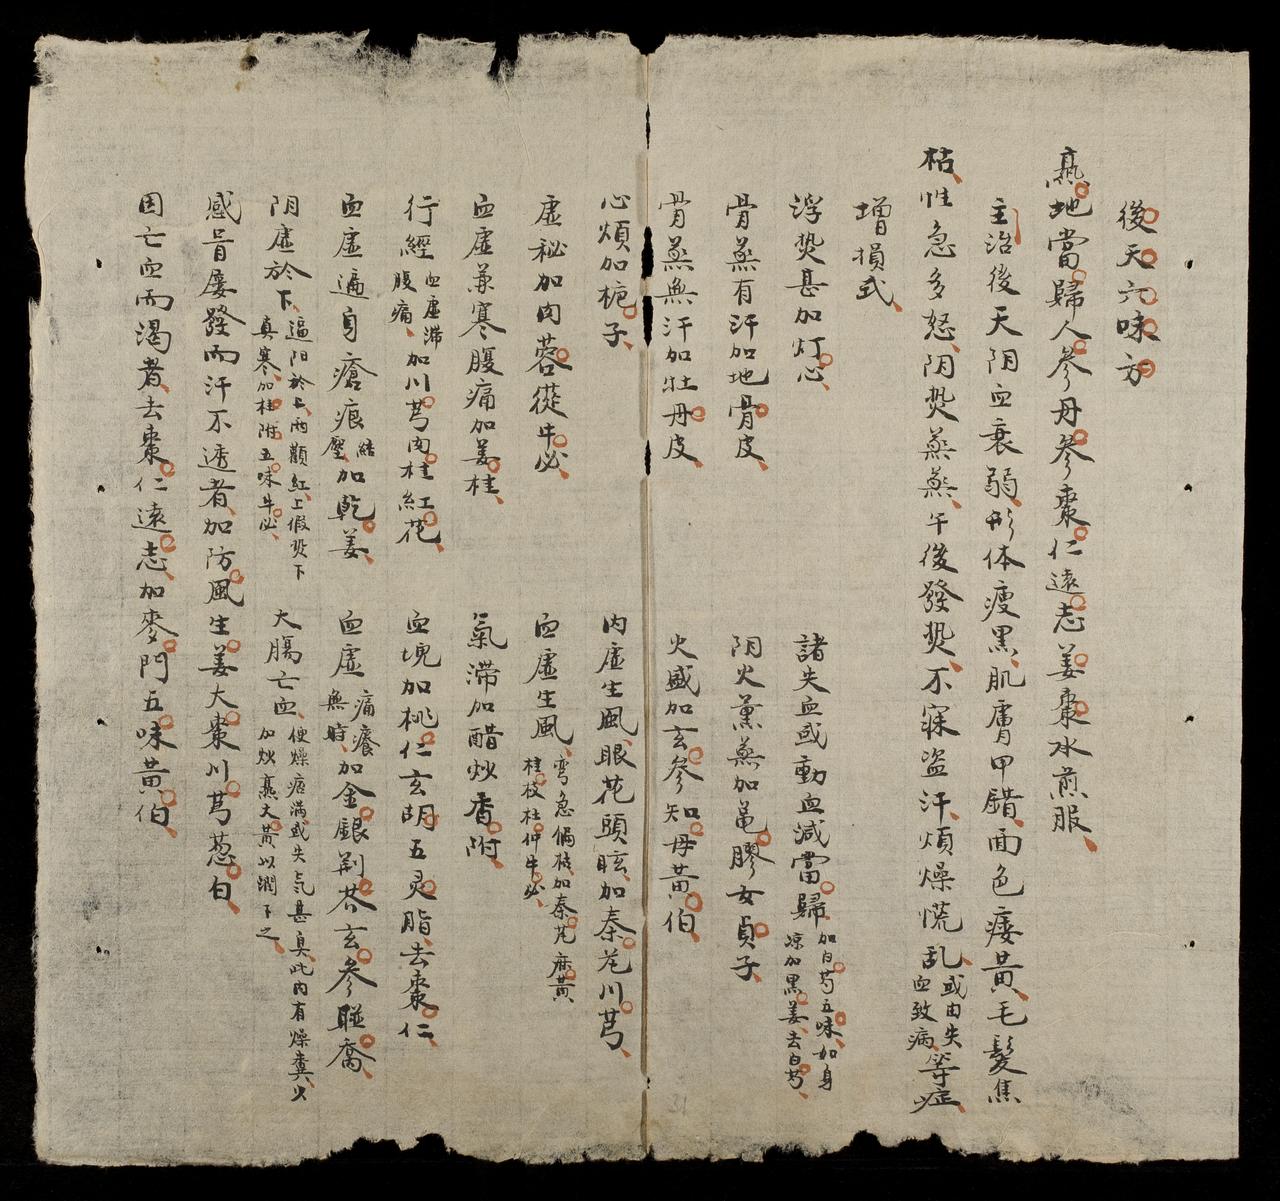 後天六味方
熟地當歸人參丹參棗仁遠志姜棗水煎服
主治後天阴血衰弱形体瘦黑肌膚甲錯面色痿黄毛髮焦
枯性急多怒阴熒蒸蒸午後發熒不寐盗汗煩燥慌乱或由失血致病等症
增損式
浮熒甚加灯心
諸失血或動血減當歸加白芍五味加身凉加黒姜去白芍
骨蒸有汗加地骨皮
阴火薰蒸加黾膠女貞子
骨蒸無汗加牡丹皮
火盛加玄參知母黄伯
心煩加梔子
内虚生風眼花頭眩加秦艽川芎
虚秘加肉蓉蓯牛必
血虚生風弯急偏枯加秦艽麻黄桂枝杜仲牛必
血虚兼寒腹痛加姜桂
氣滞加醋炒香附
行經血虚滞腹痛加川芎肉桂紅花
血塊加桃仁玄胡五灵脂去棗仁
血虚遍身瘡痕結壓加乾姜
血虚痛癢無時加金銀荆芥玄參聯喬
阴虚於下逼阳於上兩顴紅上假熒下真寒加桂附五味牛必
大腸亡血便燥痞满或失气甚臭此内有燥糞火加炒熟大黄以潤下之
感冒屡發而汗不透者加防風生姜大棗川芎葱白
因亡血而渴者去棗仁遠志加麥門五味黄伯
21